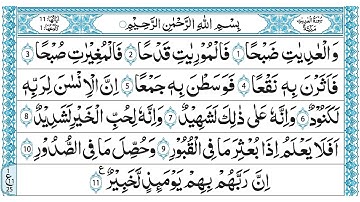 بِسْمِ اللّٰهِ الرَّحْمٰنِ الرَّحِيْمِ
وَالْعٰدِيٰتِ ضَبْحًا ۙ۱ فَالْمُوْرِيٰتِ قَدْحًا ۙ۲ فَالْمُغِيْرٰتِ صُبْحًا ۙ۳
فَاَثَرْنَ بِهٖ نَقْعًا ۙ۴ فَوَسَطْنَ بِهٖ جَمْعًا ۙ۵ اِنَّ الْاِنْسَانَ لِرَبِّهٖ
لَكَنُوْدٌ ۚ۶ وَاِنَّهٗ عَلٰى ذٰلِكَ لَشَهِيْدٌ ۚ۷ وَاِنَّهٗ لِحُبِّ الْخَيْرِ لَشَدِيْدٌ ؕ۸
اَفَلَا يَعْلَمُ اِذَا بُعْثِرَ مَا فِى الْقُبُوْرِ ۙ۹ وَحُصِّلَ مَا فِى الصُّدُوْرِ ۙ۱۰
اِنَّ رَبَّهُمْ بِهِمْ يَوْمَئِذٍ لَّخَبِيْرٌ ۱۱